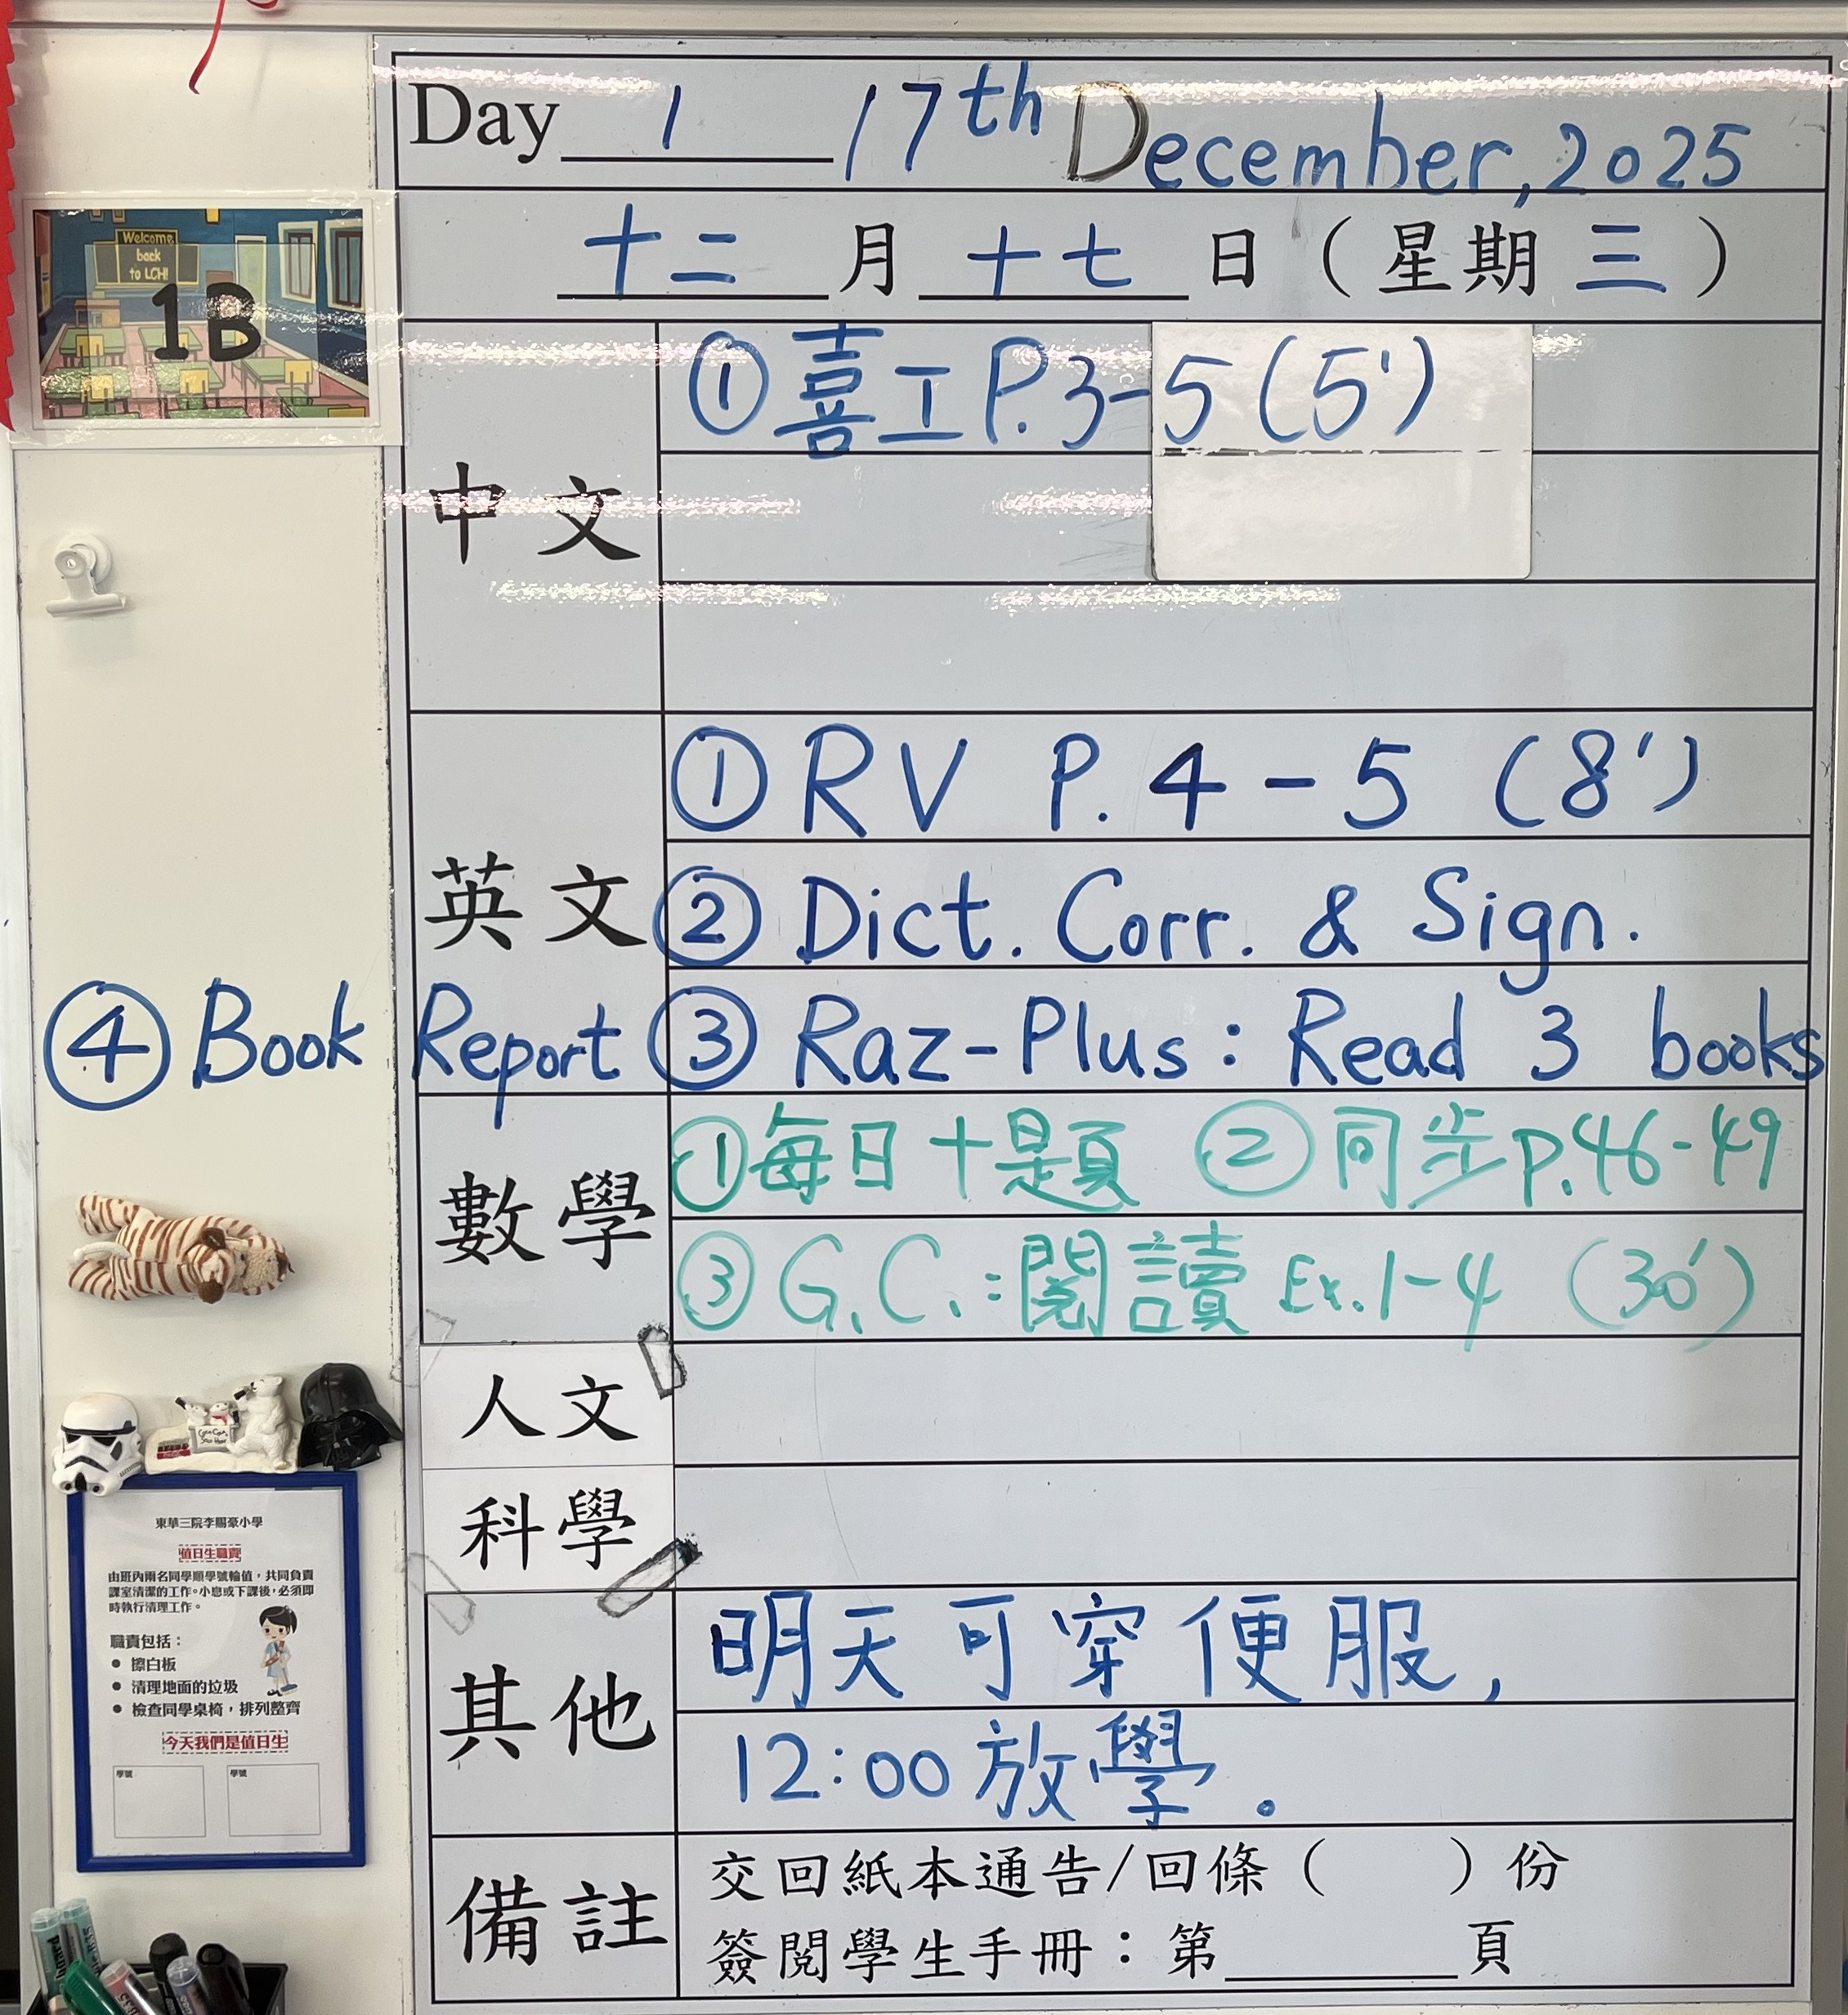 Day 1 17th December, 2025
十二 月 十七 日 ( 星期 三 )
Welcome
back
to LCH!
1B
中文
① 喜工 P.3-5 (5')
英文
① RV P. 4 - 5 (8')
② Dict. Corr. & Sign.
③ Raz-Plus : Read 3 books
④ Book Report
數學
① 每日十題 ② 同步 P.46-49
③ G.C. : 閱讀 Ex.1-4 (30')
人文
科學
其他
明天可穿便服,
12:00 放學。
備註
交回紙本通告/回條 ( ) 份
簽閱學生手冊:第 頁
東華三院李賜豪小學
值日生職責
由班內兩名同學順學號輪值,共同負責
課室清潔的工作。小息或下課後,必須即
時執行清理工作。
職責包括:
● 擦白板
● 清理地面的垃圾
● 檢查同學桌椅,排列整齊
今天我們是值日生
學號 學號